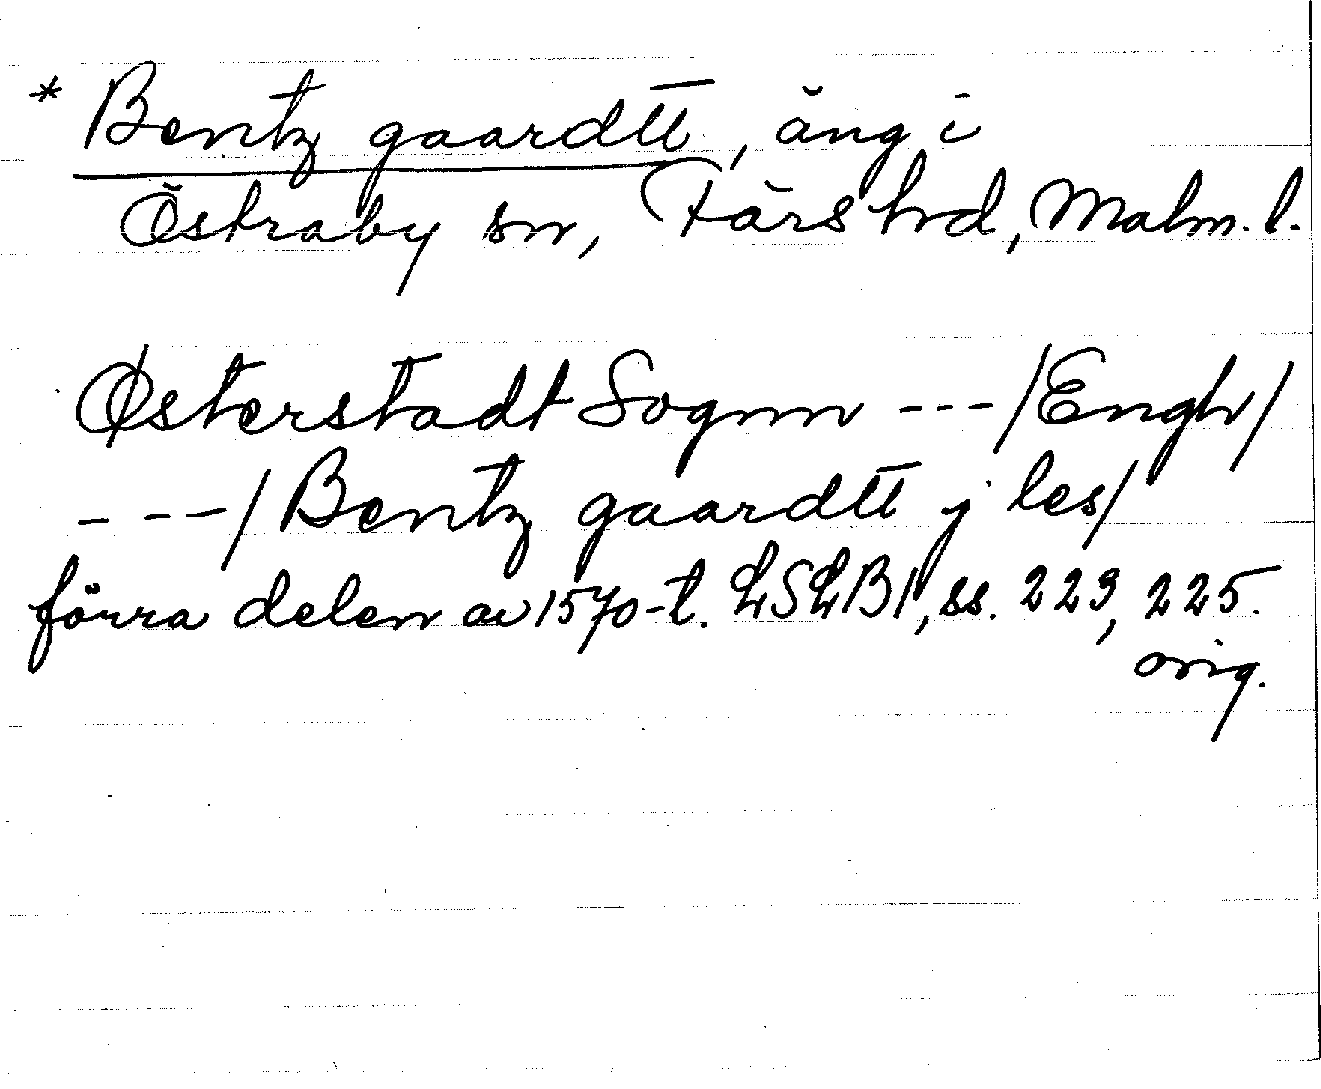 * Bentz gaardtt, äng i
Östraby sn, Färs hd, Malm. l.
Østerstadt Sognn --- /Engh/
--- / Bentz gaardtt j les/
förra delen av 1570-t. LSLB1, ss. 223, 225.
orig.